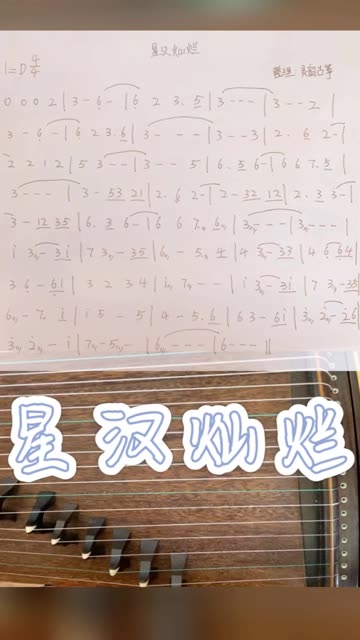 星汉灿烂
1=D 4/4
0 0 0 2 | 3 - 6 - | 6 2 3. 5 | 3 - - - | 3 - - 2 |
3 - 6 - | 6 2 3. 6 | 3 - - - | 3 - - 3 | 2. 6 2 - |
2 2 1 2 | 5 3 - - | 3 - - 5 | 6. 5 6 - | 6 6 7. 5 |
3 - - - | 3 - 53 21 | 2. 6 2 - | 2 - 32 12 | 2. 3 3 - |
3 - 12 35 | 6. 3 6 - | 6 6 7. 6 | 3 - - - | 3 - - - |
i 3 - 3i | 7 3 - 35 | 6 - 5. 4 | 4 3 - 37 | 4 6 64 |
3 6 - 61 | 3 2 3 4 | i. 7 - - | i 3 - 3i | 7 3 - 35
6 - 7. i | i 5 - 5 | 4 - 5. 6 | 6 3 - 6i | 3 2 - 26
3 2 - i | 7 - 5 - | 6 - - - | 6 - - - ||
星汉灿烂